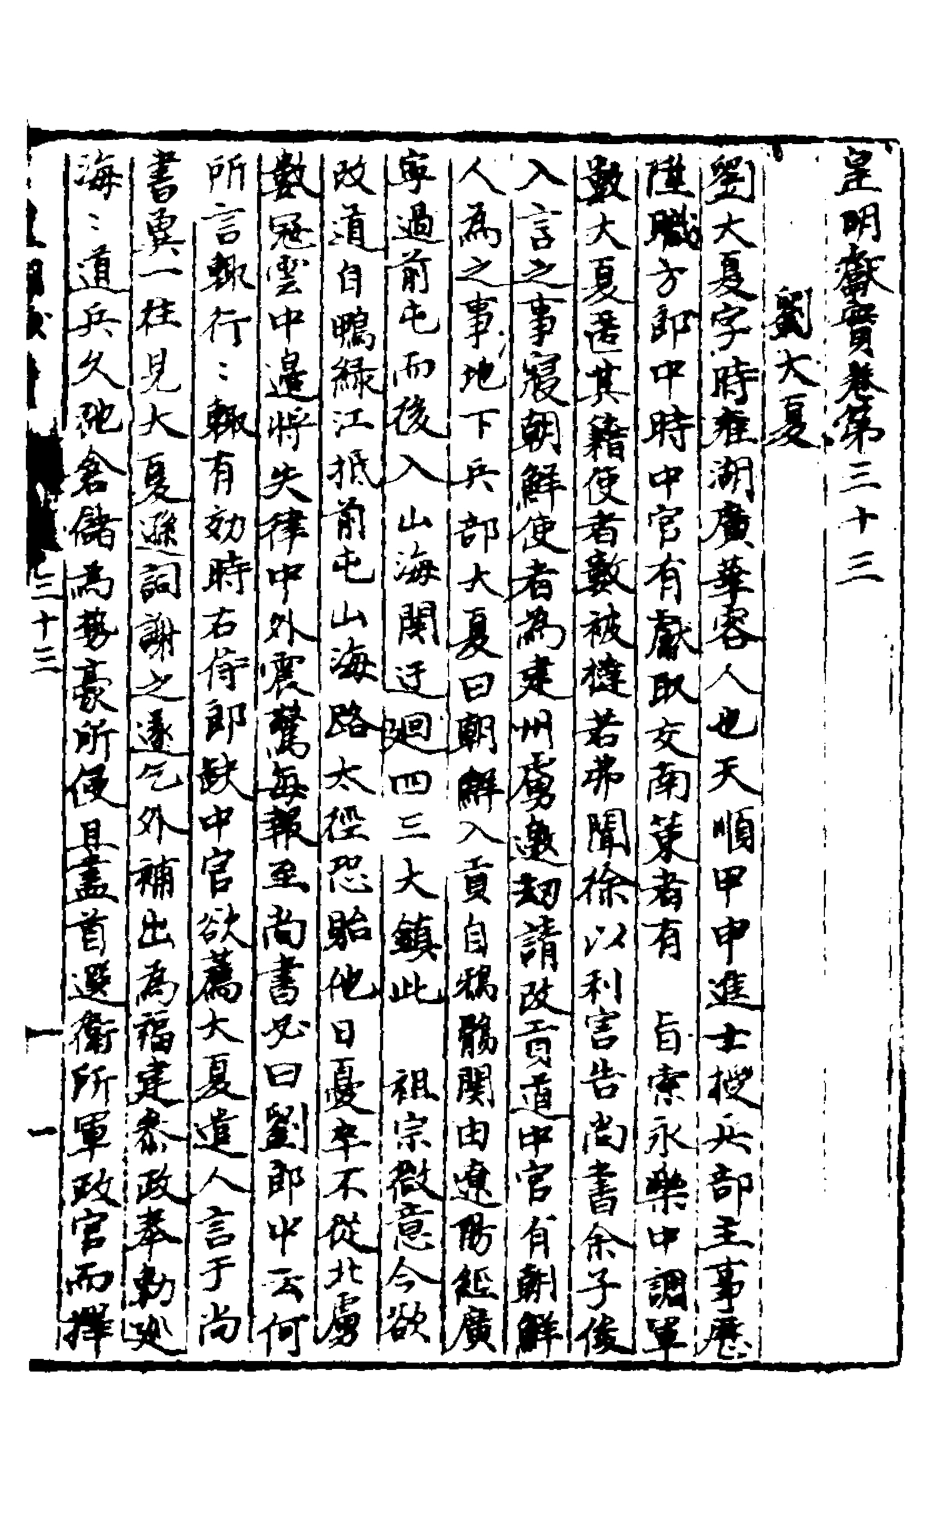 皇明獻實卷第三十三
劉大夏
劉大夏字時雍湖廣華容人也天順甲申進士授兵部主事歷
陞職方郎中時中官有獻取交南策者有 旨索永樂中調軍
數大夏匿其籍使者數被撻若弗聞徐以利害告尚書余子俊
入言之事寢朝鮮使者為建州虜邀劫請改貢道中官有朝鮮
人為之事地下兵部大夏曰朝鮮入貢自鴉鶻關由遼陽經廣
寧過前屯而後入山海關迂迴四三大鎮此 祖宗微意今欲
改道自鴨綠江抵前屯山海路太徑恐貽他日憂卒不從北虜
數寇雲中邊將失律中外震驚每報至尚書必曰劉郎中云何
所言輒行〻輒有効時右侍郎缺中官欲薦大夏遣人言于尚
書冀一往見大夏遜詞謝之遂乞外補出為福建叅政奉勅巡
海〻道兵久弛倉儲為勢豪所侵且盡首選衛所軍政官而擇
三十三
一